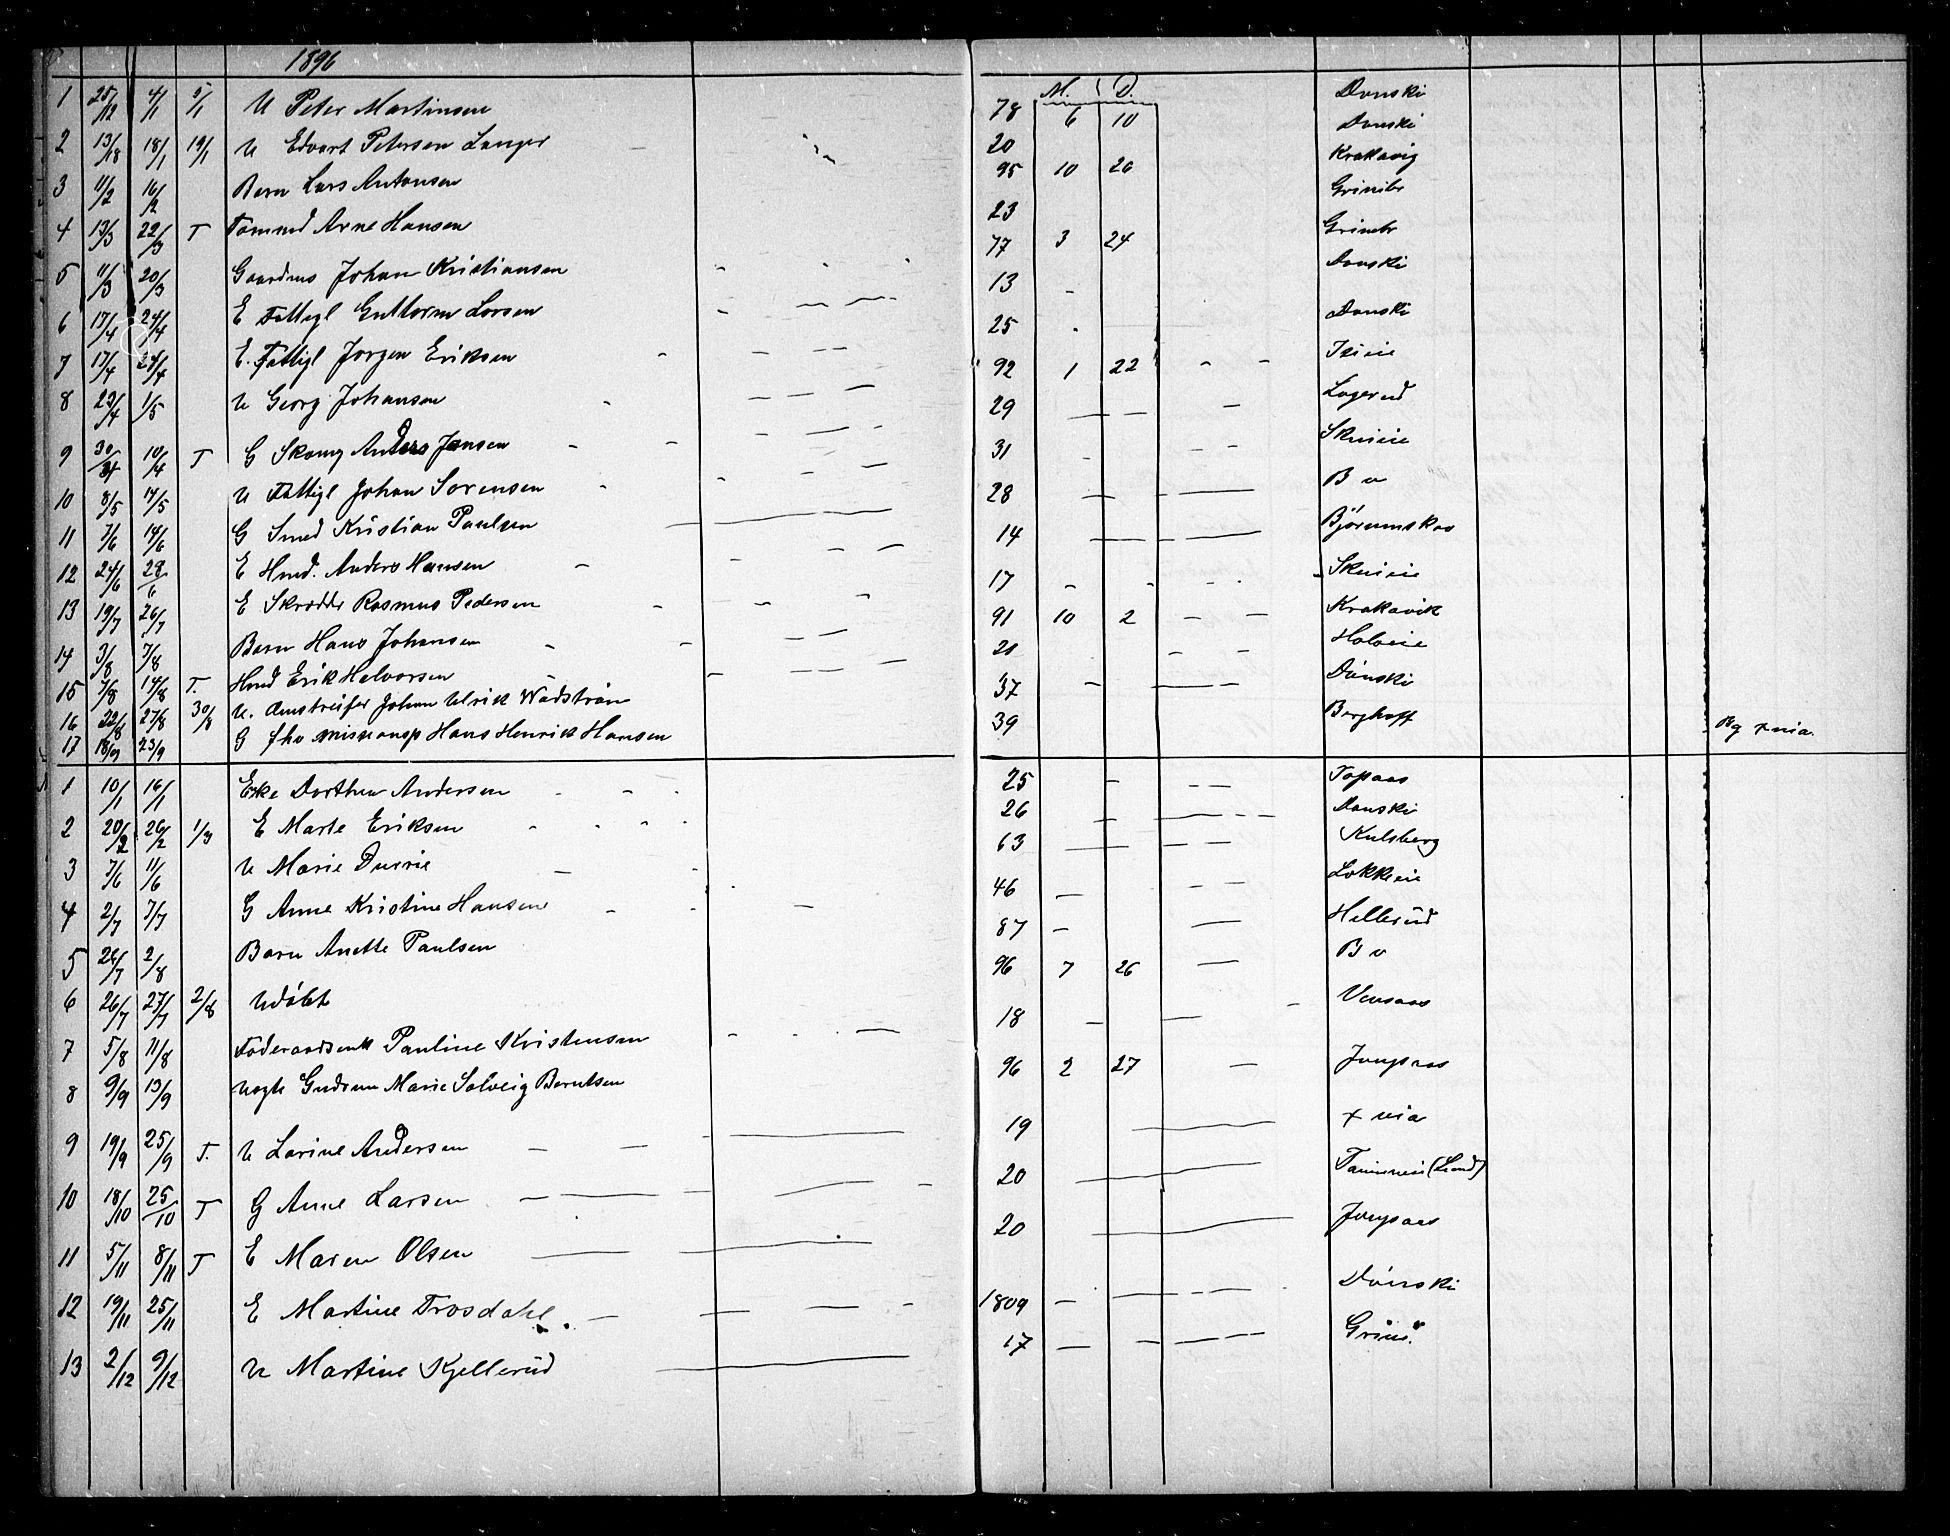 1896
M. D.
1 25/12 4/1 5/1 U Peter Martinsen 78 6 10 Dønski
2 13/18 18/1 19/1 U Edvart Petersen Langer 20 Dønski
3 11/2 16/2 Barn Lars Antonsen 95 10 26 Krakavig
4 13/3 22/3 T Tømmd Arne Hansen 23 Grinibr
5 11/3 20/3 Gaardms Johan Kristiansen 77 3 24 Grinibr
6 17/4 24/4 E Fattigl Guttorm Larsen 13 Dønski
7 17/4 24/4 E. Fattigl Jørgen Eriksen 25 Dønski
8 23/4 1/5 U Georg Johansen 92 1 22
9 30/4 10/4 T G Skomg Anders Jensen 29 Løgerud
10 8/5 14/5 U Fattigl Johan Sørensen 31 Skuieie
11 7/6 14/6 G Smed Kristian Paulsen 28 B v
12 24/6 28/6 E Hmd. Anders Hansen 14 Bjørumskov
13 19/7 26/7 E Skrædder Rasmus Pedersen 17 Skuieie
14 3/8 7/8 Barn Hans Johansen 91 10 2 Krakavik
15 7/8 14/8 T. Hmd Erik Halvorsen 21
16 22/8 27/8 30/8 U. Johan Ulrik Wadstrøm 37 Dønski
17 18/9 23/9 G fhv missionsp Hans Henrik Hansen 39 Berghoff Bg x nia.
1 10/1 16/1 Eke Dorthea Andersen 25 Topaas
2 20/2 26/2 1/3 E Marte Eriksen 26 Dønski
3 7/6 11/6 U Marie Durrie 63 Kulsberg
4 2/7 7/7 G Anne Kristine Hansen 46 Løkkeeie
5 26/7 2/8 Barn Anette Paulsen 87 Hellerud
6 26/7 27/7 2/8 Udøbt 96 7 26 B v
7 5/8 11/8 Føderaadsenk Pauline Kristensen 18 Vensaas
8 9/9 13/9 Uægte Gudrun Marie Solveig Berntsen 96 2 27 Jongsaas
9 19/9 25/9 T. U Larine Andersen 19 x nia
10 18/10 25/10 T G Anne Larsen 20 (Land)
11 5/11 8/11 T E Maren Olsen 20 Jongsaas
12 19/11 25/11 E Martine Trosdahl. 1809 Dønski
13 2/12 9/12 U Martine Kjellerud 17 Grini.